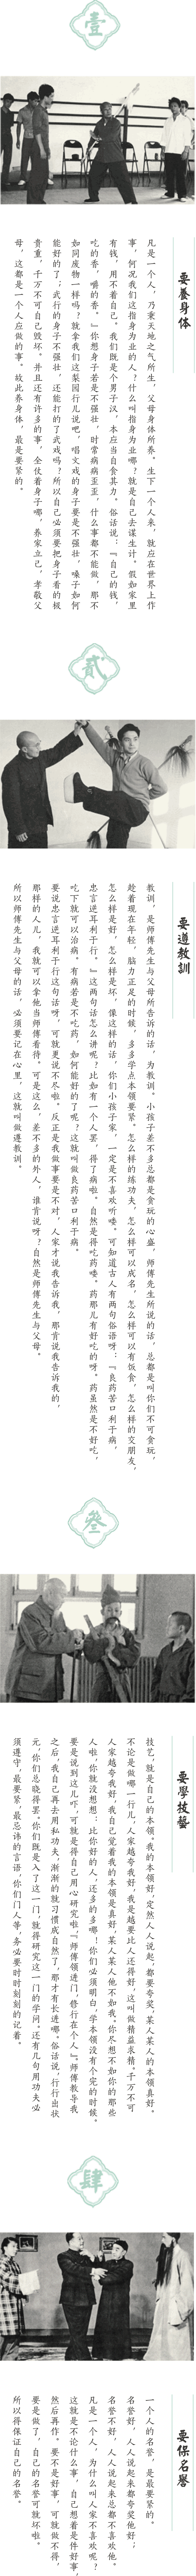 壹
要養身体
凡是一个人，乃秉天地之气所生，父母身体所养。生下一个人来，就应在世界上作
事，何况我们这指身为业的人？什么叫指身为业哪？就是自己去谋生计。假如家里
有钱，用不着自己。我们既是个男子汉，本应当自食其力。俗话说：『自己的钱，
吃的香，嚼的香。』你想身子若是不强壮，时常病病歪歪，什么事都不能做，那不
如同废物一样吗？就拿我们这梨园行儿说吧，唱文戏的身子要是不强壮，嗓子如何
能好的了；武行的身子不强壮，还能打的了武戏吗？所以自己必须要把身子看的极
贵重，千万不可自己毁坏。并且还有许多的事，全仗着身子哪，养家立己，孝敬父
母，这都是一个人应做的事。故此养身体，最是要紧的。
贰
要遵教訓
教训，是师傅先生与父母所告诉的话，为教训。小孩子差不多总都是贪玩的心盛，师傅先生所说的话，总都是叫你们不可贪玩，
趁着现在年轻，脑力正足的时候，多多学点本领要紧。怎么样的练功夫，怎么样可以成名，怎么样可以有饭食，怎么样的交朋友，
怎么样是好，怎么样是坏，像这样的话，你们小孩子家，一定是不喜欢听喽。可知道古人有两句俗语呀：『良药苦口利于病，
忠言逆耳利于行。』这两句话怎么讲呢？比如有一个人罢，得了病啦。自然是得吃药喽。药那儿有好吃的呀。药虽然是不好吃，
吃下就可以治病。有病若是不吃药，如何能好的了呢？这就叫做良药苦口利于病。
要说忠言逆耳利于行这句话呀，可就更说不尽啦。反正是我做事要是不对，人家才说我告诉我，那肯说我告诉我的，
那样的人儿，我就可以拿他当师傅看待。可是这么，差不多的外人，谁肯说呀？自然是师傅先生与父母。
所以师傅先生与父母的话，必须要记在心里，这就叫做遵教训。
叁
要學技藝
技艺，就是自己的本领。我的本领好，定然人人说起，都要夸奖，某人某人的本领真好。
不论是做哪一行儿，人家越夸我好，我是越要比人还得好，这叫做精益求精。千万不可
人家越夸我好，我自己觉着我的本领是真好，某人某人他不如我。你尽想不如你的那些
人啦，你就没想想，比你好的人，还多的多哪！你们必须明白，学本领没有个完的时候。
要是说到这儿吓，可就是得自己用心研究啦。『师傅领进门，替行在个人』。师傅教导我
之后，我自己再去用私功夫，渐渐的就习惯成自然了，那才有长进哪。俗话说，行行出状
元，你们总晓得罢。你们既是入了这一门，就得研究这一门的学问。还有几句用功夫必
须遵守，最要紧，最忌讳的言语，你们门人等，务必要时时刻刻的记着。
肆
要保名譽
一个人的名誉，是最要紧的。
名誉好，人人说起来都夸奖他好；
名誉不好，人人说起来总都不喜欢他。
凡是一个人，为什么叫人家不喜欢呢？
这就是不论什么事，自己想着是件好事，
然后再作。要不是好事，可就做不得，
要是做了，自己的名誉可就坏啦。
所以得保证自己的名誉。